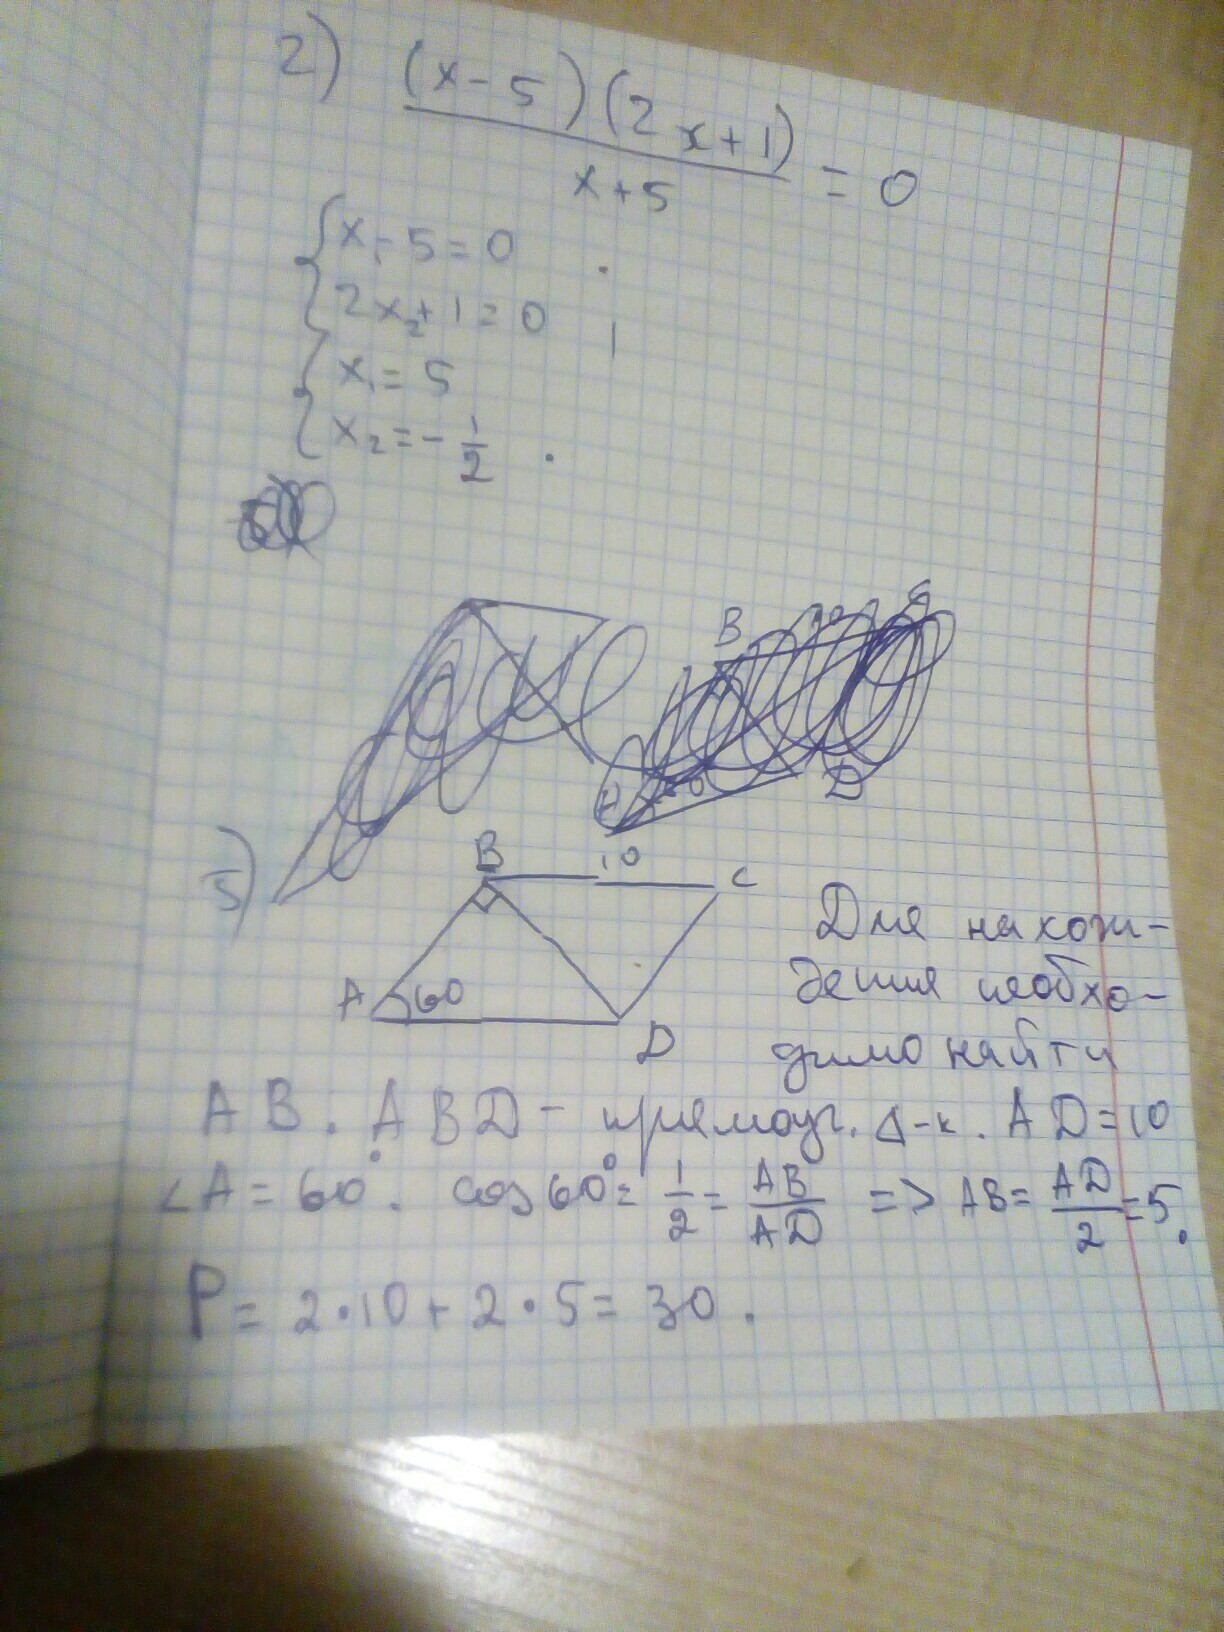 2) (x-5)(2x+1)
x+5
= 0
x₁-5=0
2x₂+1=0
x₁=5
x₂=-1/2.
B 10
D
5)
B 10 C
A 60
D
Для нахож-
дения необхо-
димо найти
AB. ABD - прямоуг. Δ-к. AD=10
∠A=60°. cos60°=1/2=AB/AD => AB=AD/2=5.
P=2·10+2·5=30.